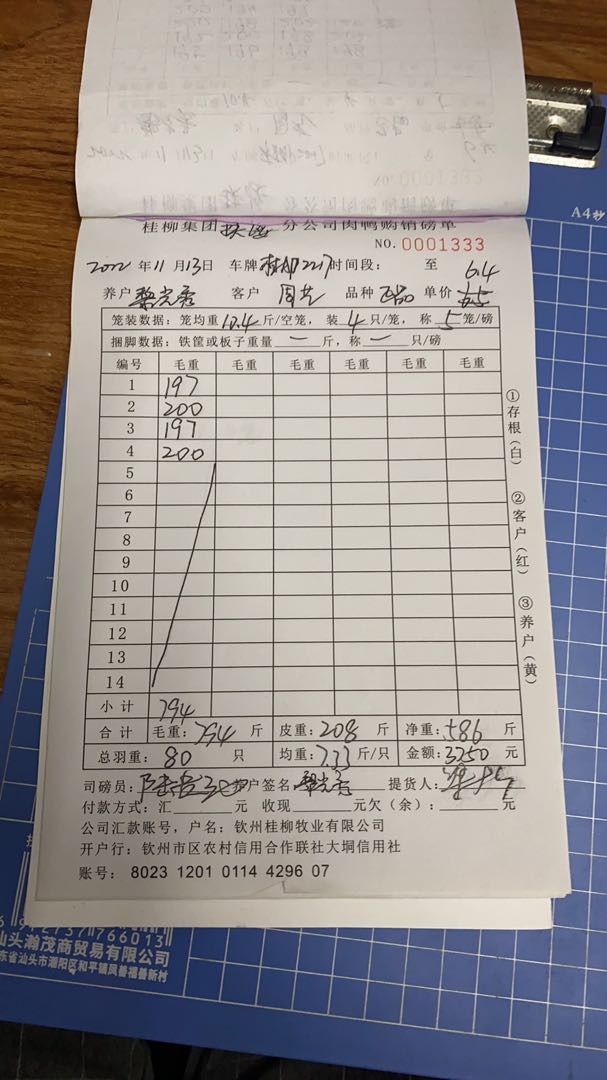 桂柳集团 分公司肉鸭购销磅单
NO. 0001333
2022 年 11 月 13 日 车牌 时间段: 至 6.4
养户 客户 周艺 品种 正品 单价 6.5
笼装数据: 笼均重 10.4 斤/空笼, 装 4 只/笼, 称 5 笼/磅
捆脚数据: 铁筐或板子重量 一 斤, 称 一 只/磅
编号 毛重 毛重 毛重 毛重 毛重 毛重
1 197
2 200
3 197
4 200
5
6
7
8
9
10
11
12
13
14
小计 794
合计 毛重: 794 斤 皮重: 208 斤 净重: 586 斤
总羽重: 80 只 均重: 7.33 斤/只 金额: 3750 元
司磅员: 养户签名: 提货人:
付款方式: 汇 元 收现 元欠(余): 元
公司汇款账号, 户名: 钦州桂柳牧业有限公司
开户行: 钦州市区农村信用合作联社大垌信用社
账号: 8023 1201 0114 4296 07
①存根(白)
②客户(红)
③养户(黄)
A4
766013
汕头瀚茂商贸易有限公司
东省汕头市潮阳区和平镇凤善福善新村